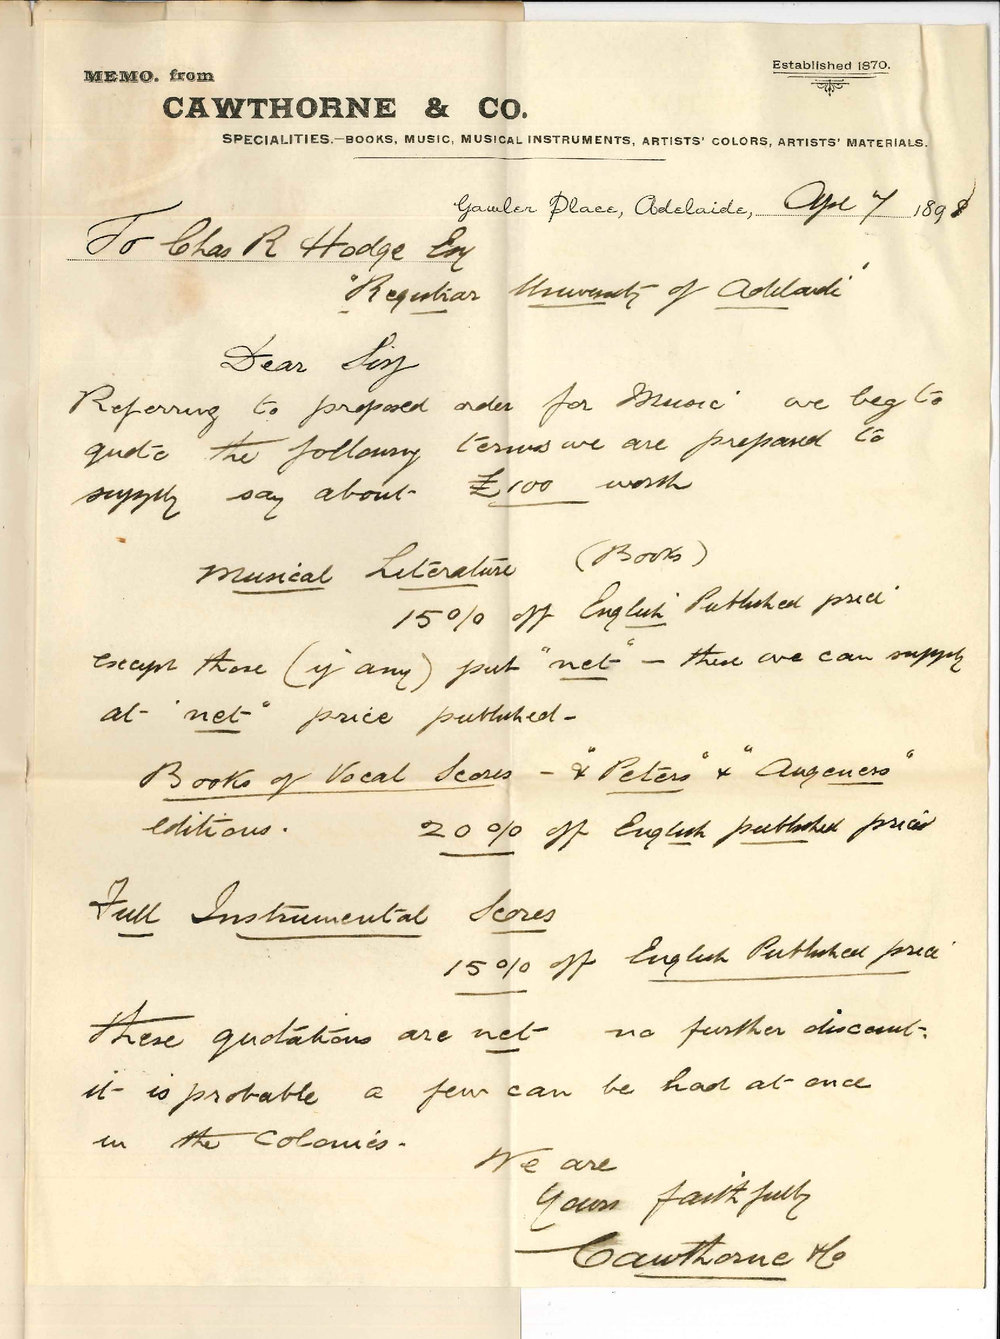 MEMO. from
Established 1870.
CAWTHORNE & CO.
SPECIALITIES.—BOOKS, MUSIC, MUSICAL INSTRUMENTS, ARTISTS' COLORS, ARTISTS' MATERIALS.
Gawler Place, Adelaide, Apl 7 1898
To Chas R Hodge Esq
"Registrar University of Adelaide"
Dear Sir
Referring to proposed order for Music we beg to
quote the following terms we are prepared to
supply say about £100 worth
Musical Literature (Books)
15% off English Published price
except those (if any) put "net" – these we can supply
at "net" price published –
Books of Vocal Scores – & "Peters" & "Augeners"
editions. 20% off English published price
Full Instrumental Scores
15% off English Published price
these quotations are net no further discount.
it is probable a few can be had at once
in the Colonies.
We are
Yours faithfully
Cawthorne & Co